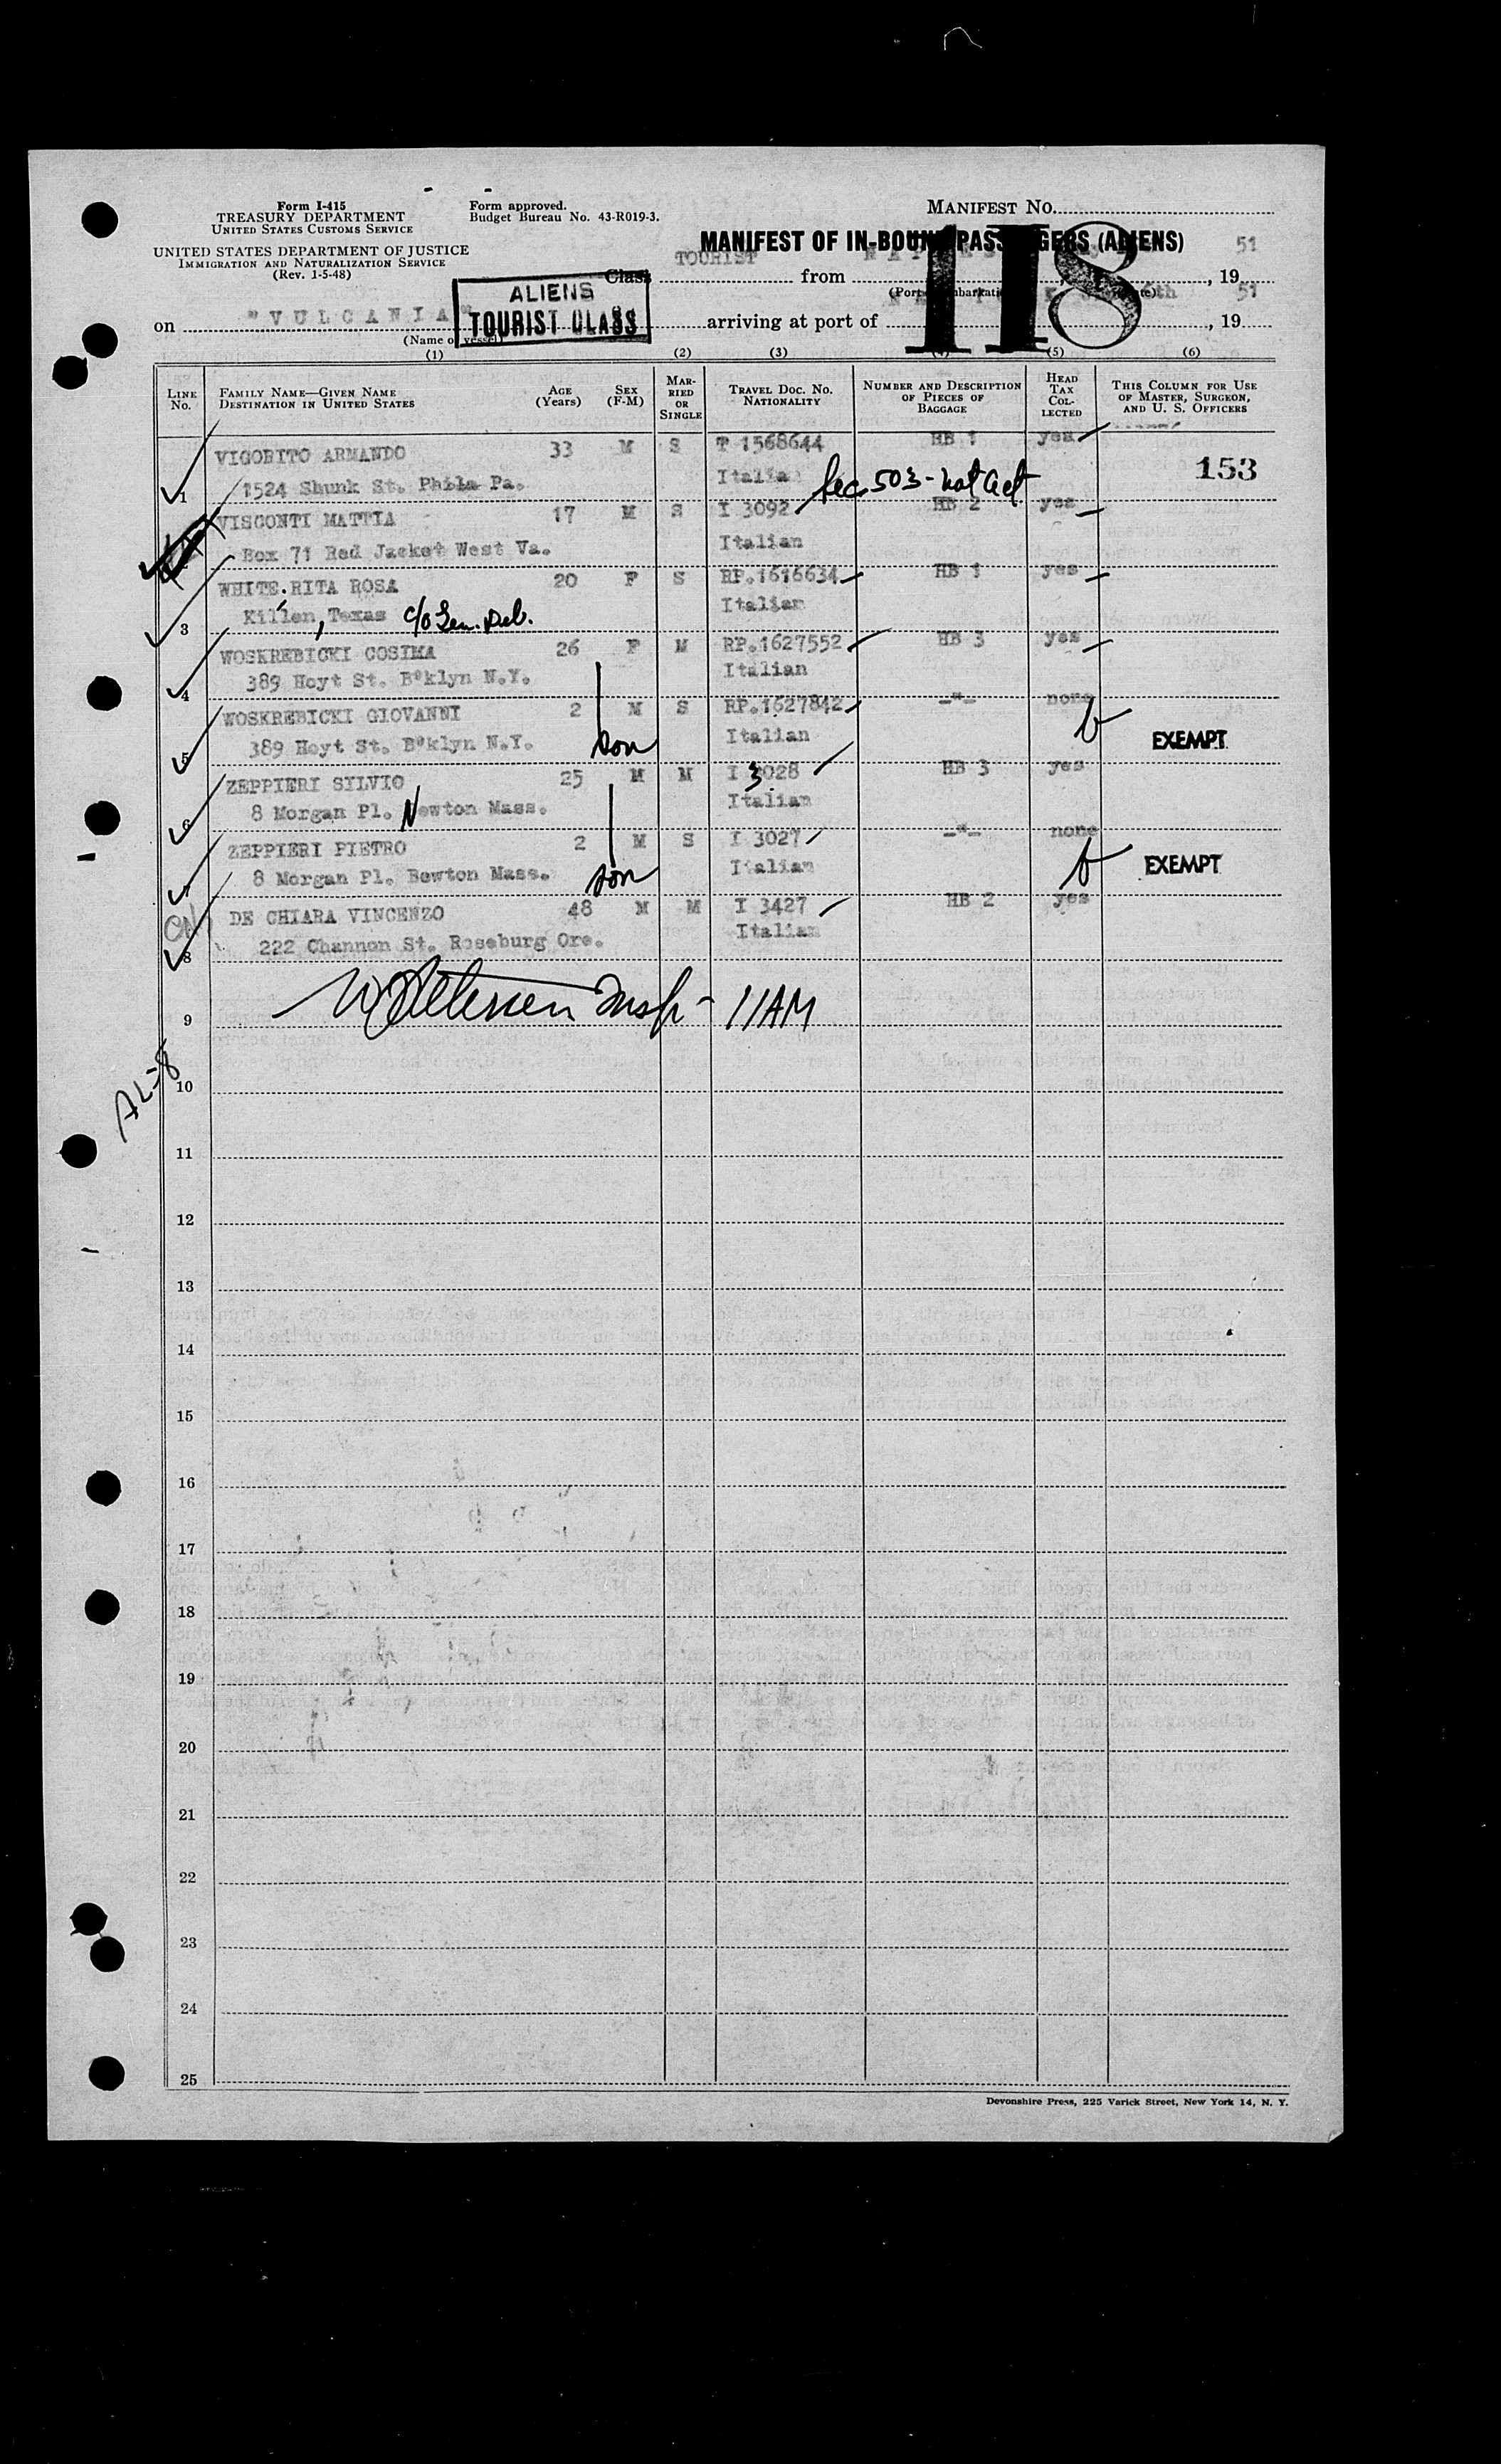 Form I-415
TREASURY DEPARTMENT
UNITED STATES CUSTOMS SERVICE
Form approved.
Budget Bureau No. 43-R019-3.
MANIFEST NO.
UNITED STATES DEPARTMENT OF JUSTICE
IMMIGRATION AND NATURALIZATION SERVICE
(Rev. 1-5-48)
MANIFEST OF IN-BOUND PASSENGERS (ALIENS)
118
Class TOURIST from , 19 51
ALIENS
TOURIST CLASS
on "VULCANIA" arriving at port of , 19 51
(Name of vessel)
(1) (2) (3) (4) (5) (6)
LINE No.
FAMILY NAME—GIVEN NAME
DESTINATION IN UNITED STATES
AGE (Years)
SEX (F-M)
MARRIED OR SINGLE
TRAVEL DOC. NO.
NATIONALITY
NUMBER AND DESCRIPTION OF PIECES OF BAGGAGE
HEAD TAX COLLECTED
THIS COLUMN FOR USE OF MASTER, SURGEON, AND U. S. OFFICERS
VIGORITO ARMANDO 33 M S T 1568644 HB 1 yes
1 1524 Shunk St. Phila Pa. Italian Sec. 503 - Nat Act 153
VISCONTI MATTIA 17 M S I 3092 HB 2 yes
Box 71 Red Jacket West Va. Italian
WHITE RITA ROSA 20 F S RP.1616634 HB 1 yes
3 Killen, Texas c/o Gen. Del. Italian
WOSKREBICKI COSIMA 26 F M RP.1627552 HB 3 yes
4 389 Hoyt St. B°klyn N.Y. Italian
WOSKREBICKI GIOVANNI 2 M S RP.1627842 -"- none
5 389 Hoyt St. B°klyn N.Y. son Italian EXEMPT
ZEPPIERI SILVIO 25 M M I 3028 HB 3 yes
6 8 Morgan Pl. Newton Mass. Italian
ZEPPIERI PIETRO 2 M S I 3027 -"- none
7 8 Morgan Pl. Bewton Mass. son Italian EXEMPT
DE CHIARA VINCENZO 48 M M I 3427 HB 2 yes
8 222 Channon St. Roseburg Ore. Italian
9 Insp - 11AM
AL-8
10
11
12
13
14
15
16
17
18
19
20
21
22
23
24
25
Devonshire Press, 225 Varick Street, New York 14, N. Y.